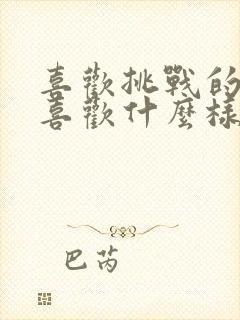 喜歡挑戰的
喜歡什麼樣
巴芮